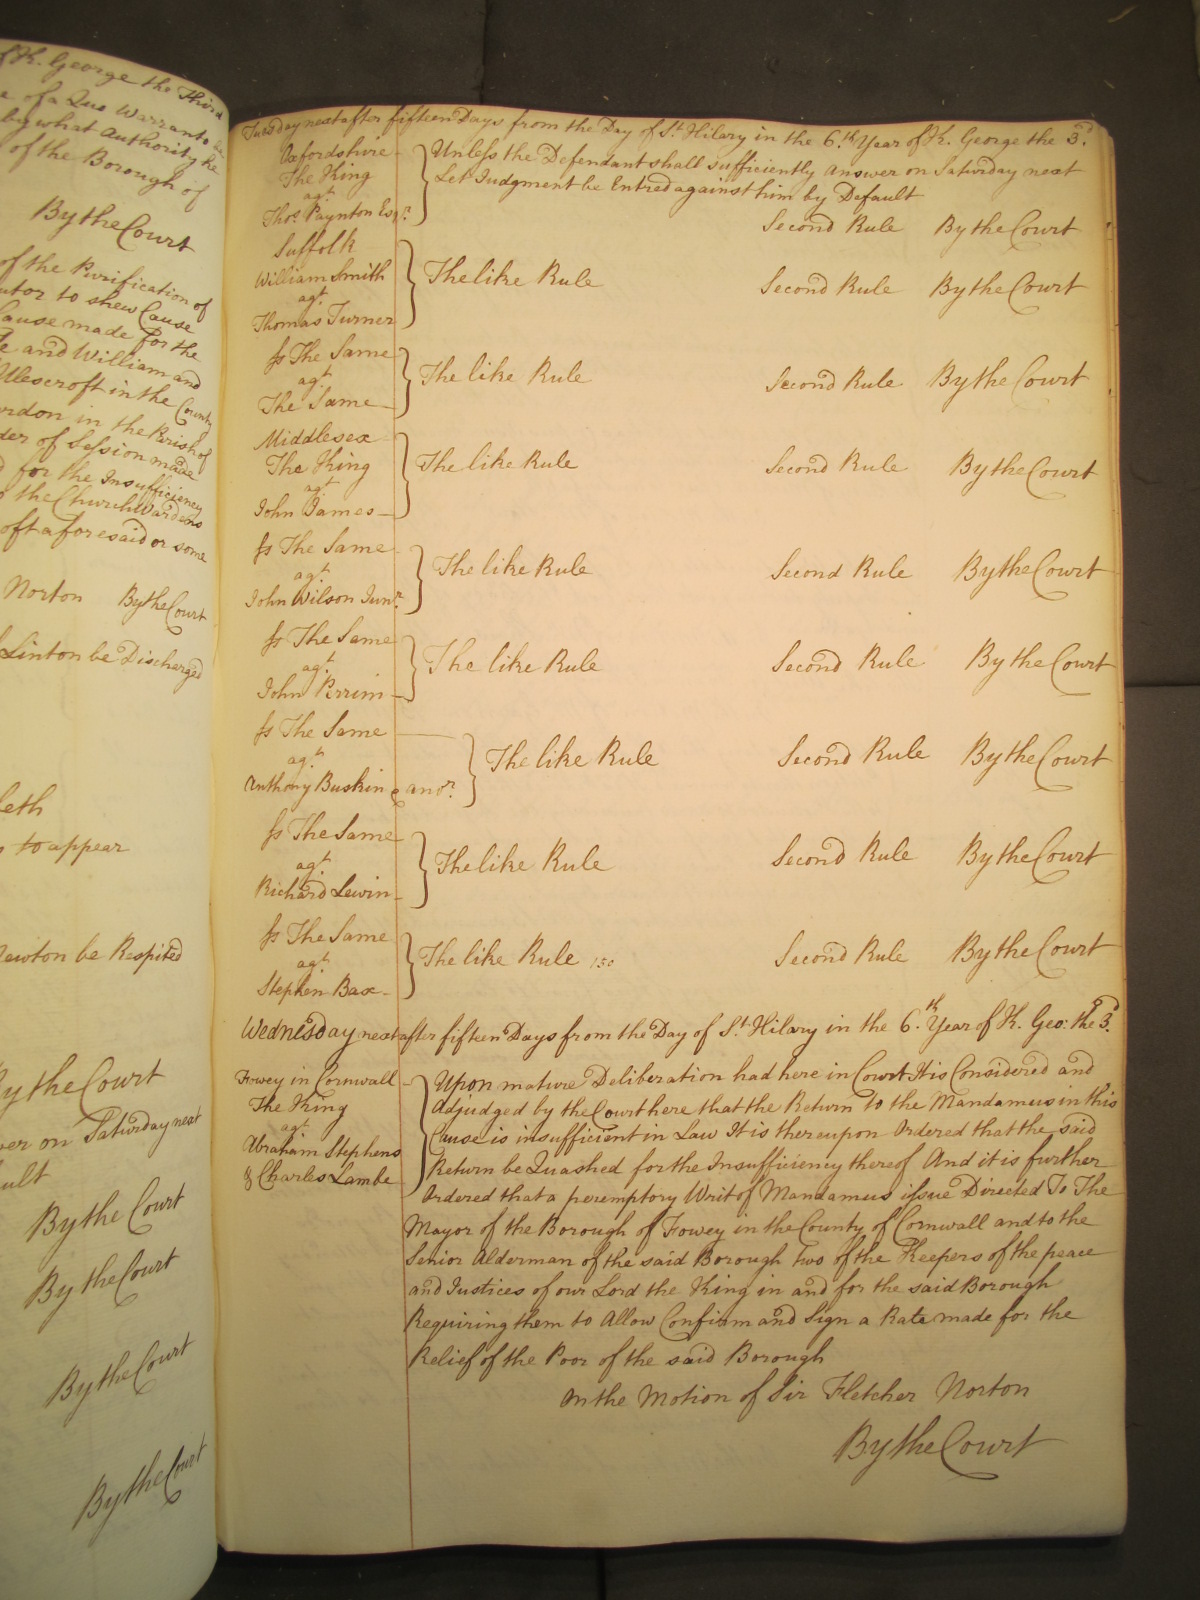 of K. George the Third
of a Quo Warranto
by what Authority he
of the Borough of
By the Court
of the Purification of
to shew Cause
Cause made for the
and William and
Ulescroft in the County
in the Parish of
der of Session made
for the Insufficiency
the Church Wardens
oft aforesaid or some
Norton By the Court
Linton be Discharged
leth
to appear
Newton be Respited
By the Court
wer on Saturday next
ult
By the Court
By the Court
By the Court
By the Court
Tuesday next after fifteen Days from the Day of St. Hilary in the 6.th Year of K. George the 3.d
Oxfordshire
The King
agt.
Thos. Paynton Esqr.
Unless the Defendant shall sufficiently answer on Saturday next
Let Judgment be Entred against him by Default
Second Rule By the Court
Suffolk
William Smith
agt.
Thomas Turner
The like Rule Second Rule By the Court
Ss The Same
agt.
The Same
The like Rule Second Rule By the Court
Middlesex
The King
agt.
John James
The like Rule Second Rule By the Court
Ss The Same
agt.
John Wilson Junr.
The like Rule Second Rule By the Court
Ss The Same
agt.
John Perrim
The like Rule Second Rule By the Court
Ss The Same
agt.
Anthony Buskin & anor.
The like Rule Second Rule By the Court
Ss The Same
agt.
Richard Lewin
The like Rule Second Rule By the Court
Ss The Same
agt.
Stephen Bax
The like Rule 150 Second Rule By the Court
Wednesday next after fifteen Days from the Day of St. Hilary in the 6.th Year of K. Geo: the 3.d
Fowey in Cornwall
The King
agt.
Abraham Stephens
& Charles Lambe
Upon mature Deliberation had here in Court It is Considered and
adjudged by the Court here that the Return to the Mandamus in this
Cause is insufficient in Law It is thereupon Ordered that the said
Return be Quashed for the Insufficiency thereof And it is further
Ordered that a peremptory Writ of Mandamus issue Directed To The
Mayor of the Borough of Fowey in the County of Cornwall and to the
Senior Alderman of the said Borough two of the Keepers of the peace
and Justices of our Lord the King in and for the said Borough
Requiring them to Allow Confirm and Sign a Rate made for the
Relief of the Poor of the said Borough
On the Motion of Sir Fletcher Norton
By the Court